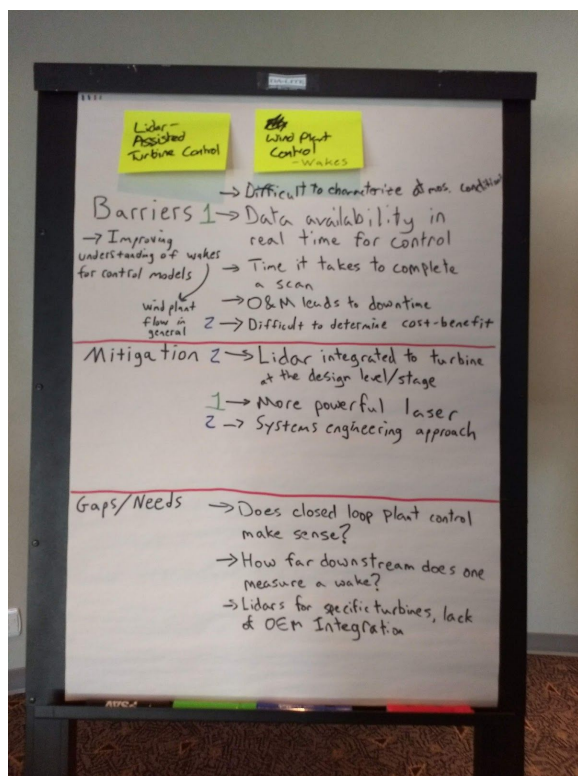 DA-LITE
Lidar-
Assisted
Turbine Control
Wind Plant
Control
- Wakes
→ Difficult to characterize atmos. conditions
Barriers 1 → Data availability in
real time for control
→ Improving
understanding of wakes
for control models
wind plant
flow in
general
→ Time it takes to complete
a scan
→ O&M leads to downtime
2 → Difficult to determine cost-benefit
Mitigation 2 → Lidar integrated to turbine
at the design level/stage
1 → More powerful laser
2 → Systems engineering approach
Gaps/Needs → Does closed loop plant control
make sense?
→ How far downstream does one
measure a wake?
→ Lidars for specific turbines, lack
of OEM Integration